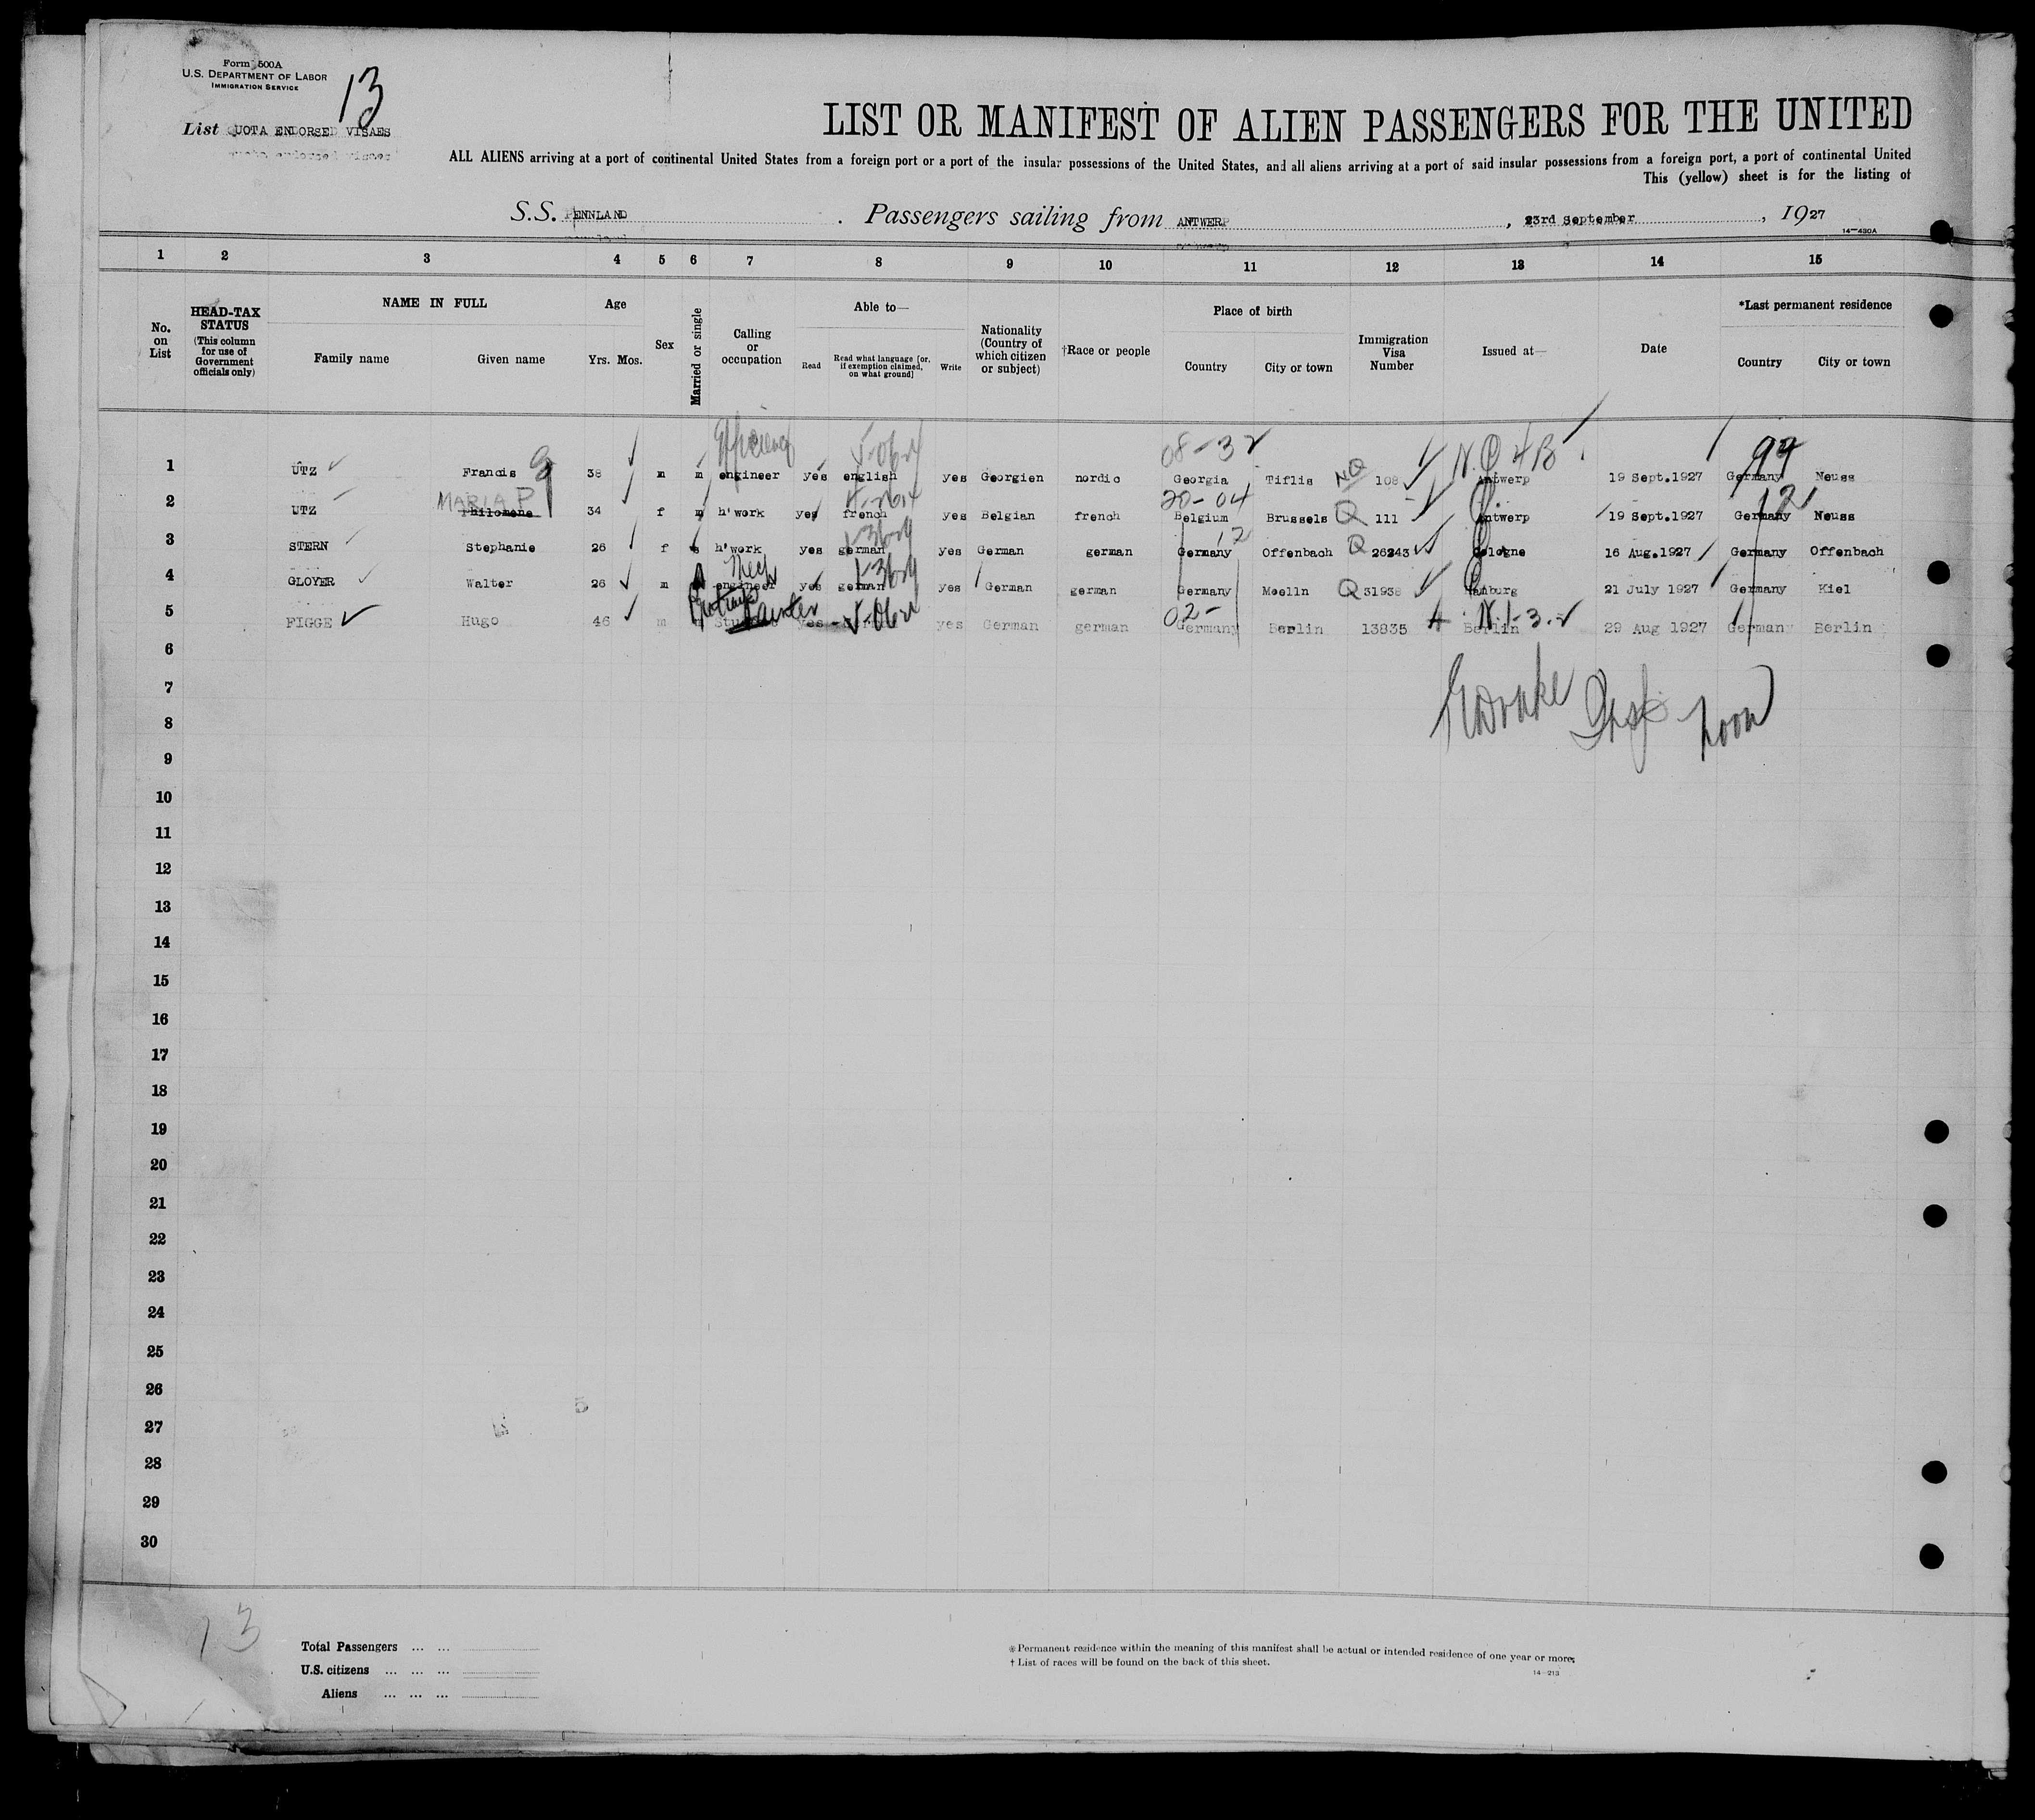 Form 500A
U.S. DEPARTMENT OF LABOR
IMMIGRATION SERVICE
13
List QUOTA ENDORSED VISAES
LIST OR MANIFEST OF ALIEN PASSENGERS FOR THE UNITED
ALL ALIENS arriving at a port of continental United States from a foreign port or a port of the insular possessions of the United States, and all aliens arriving at a port of said insular possessions from a foreign port, a port of continental United
This (yellow) sheet is for the listing of
S.S. PENNLAND . Passengers sailing from ANTWERP , 23rd September , 1927
14—430A
1 2 3 4 5 6 7 8 9 10 11 12 13 14 15
No. on List
HEAD-TAX STATUS (This column for use of Government officials only)
NAME IN FULL
Family name Given name
Age
Yrs. Mos.
Sex
Married or single
Calling or occupation
Able to—
Read Read what language [or, if exemption claimed, on what ground] Write
Nationality (Country of which citizen or subject)
†Race or people
Place of birth
Country City or town
Immigration Visa Number
Issued at—
Date
*Last permanent residence
Country City or town
Efficiency 08-32 99
1 UTZ Francis G 38 m m engineer yes english yes Georgien nordic Georgia Tiflis NQ 108 Antwerp 19 Sept.1927 Germany Neuss
MARIA P 20-04 12
2 UTZ Philomene 34 f m h'work yes french yes Belgian french Belgium Brussels Q 111 Antwerp 19 Sept.1927 Germany Neuss
12
3 STERN Stephanie 26 f s h'work yes german yes German german Germany Offenbach Q 26243 Cologne 16 Aug.1927 Germany Offenbach
Mech
4 GLOYER Walter 26 m engineer yes german yes German german Germany Moelln Q 31938 Hamburg 21 July 1927 Germany Kiel
Painter 02-
5 FIGGE Hugo 46 m m yes yes German german Germany Berlin 13835 Berlin 29 Aug 1927 Germany Berlin
6
7
8
9
10
11
12
13
14
15
16
17
18
19
20
21
22
23
24
25
26
27
28
29
30
13
Total Passengers ... ...
U.S. citizens ... ... ...
Aliens ... ... ...
*Permanent residence within the meaning of this manifest shall be actual or intended residence of one year or more.
† List of races will be found on the back of this sheet.
14—213